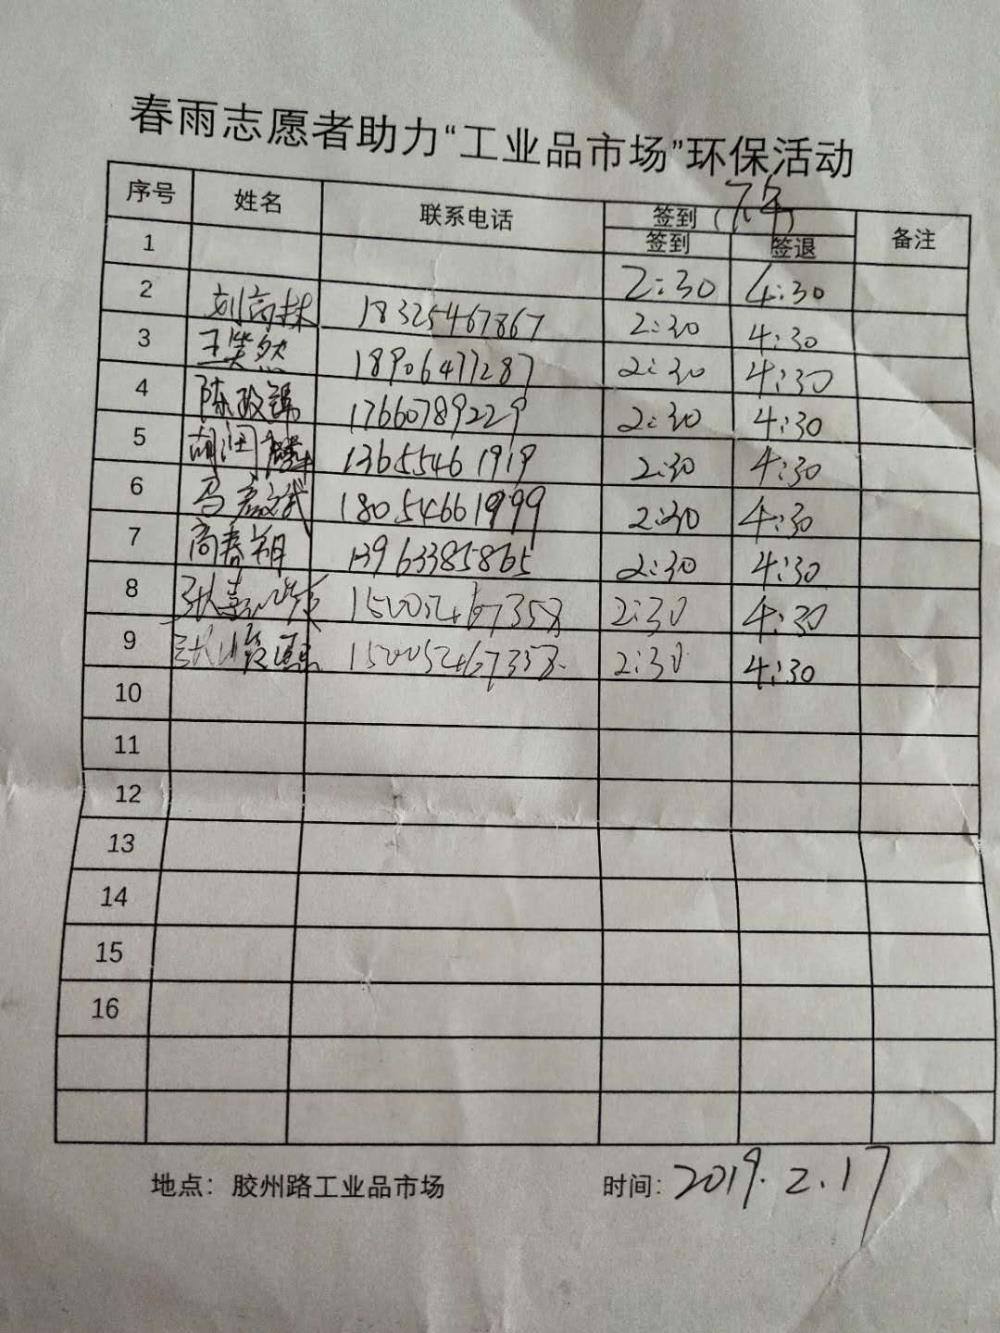 春雨志愿者助力“工业品市场”环保活动
序号 姓名 联系电话 签到（下午） 备注
签到 签退
1 2:30 4:30
2 刘高林 18325467867 2:30 4:30
3 王昊然 18906477287 2:30 4:30
4 陈政錦 17660789229 2:30 4:30
5 胡润麟 13655461919 2:30 4:30
6 马宏斌 18054661999 2:30 4:30
7 高春翔 13963385865 2:30 4:30
8 张嘉 15005467358 2:30 4:30
9 张 15005467358. 2:30 4:30
10
11
12
13
14
15
16
地点：胶州路工业品市场 时间：2019.2.17